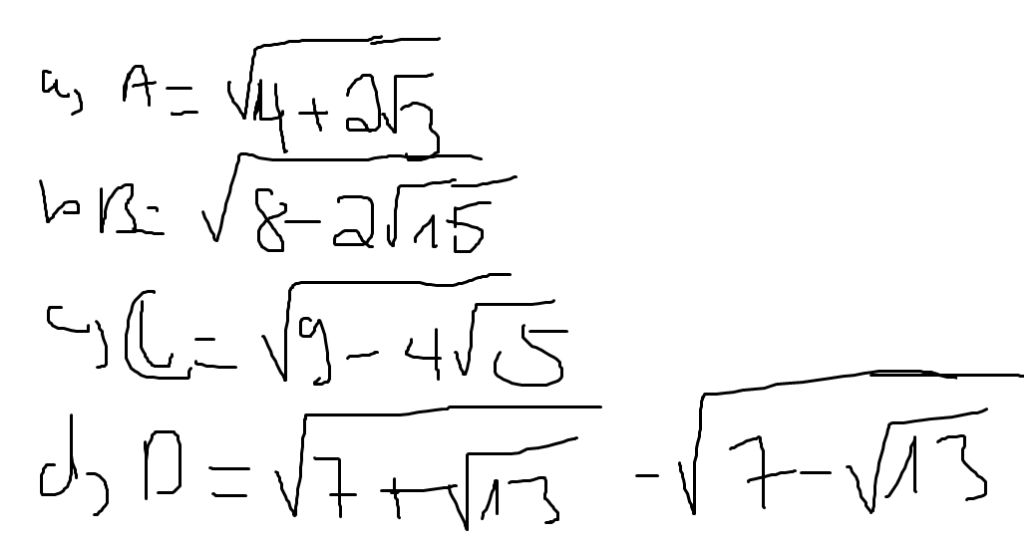 a, A = √(4 + 2√3)
b, B = √(8 - 2√15)
c, C = √(9 - 4√5)
d, D = √(7 + √13) - √(7 - √13)